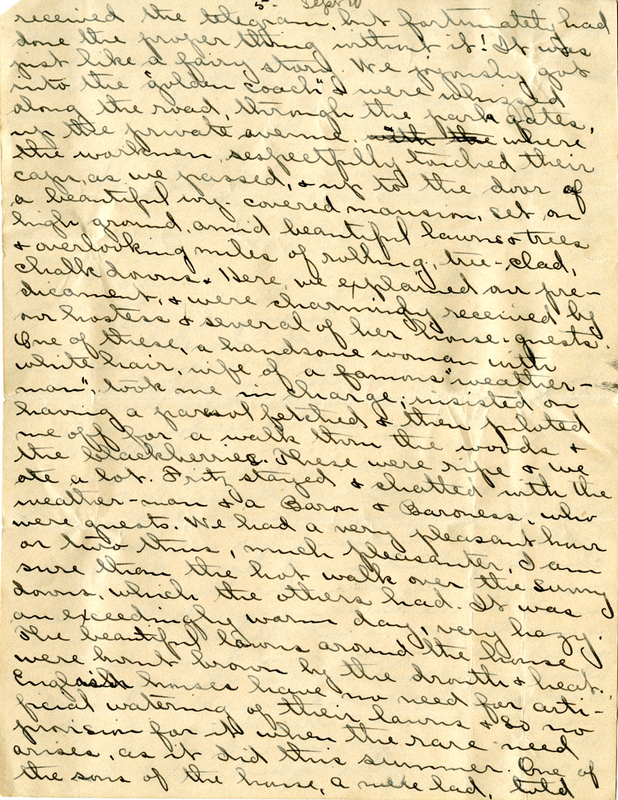 5 Sept 10
received the telegram, but fortunately had
done the proper thing without it! It was
just like a fairy story. We joyously got
into the "golden coach" & were whizzed
along the road, through the park gates,
up the private avenue, with the where
the workmen respectfully touched their
caps, as we passed, & up to the door of
a beautiful ivy-covered mansion, set on
high ground, amid beautiful lawns & trees
& overlooking miles of rolling, tree-clad,
chalk downs. Here, we explained our pre-
dicament, & were charmingly received by
our hostess & several of her house-guests.
One of these, a handsome woman with
white hair, wife of a famous "weather-
man", took me in charge; insisted on
having a parasol fetched & then piloted
me off for a walk thro the woods &
the blackberries. These were ripe & we
ate a lot. Fritz stayed & chatted with the
weather-man & a Baron & Baroness, who
were guests. We had a very pleasant hour
or two thus, much pleasanter, I am
sure than the hot walk over the sunny
downs, which the others had. It was
an exceedingly warm day, very hazy.
The beautiful lawns around the house
were burnt brown by the drouth & heat.
English houses have no need for arti-
ficial watering of their lawns & so no
provision for it when the rare need
arises, as it did this summer. One of
the sons of the house, a mere lad, told